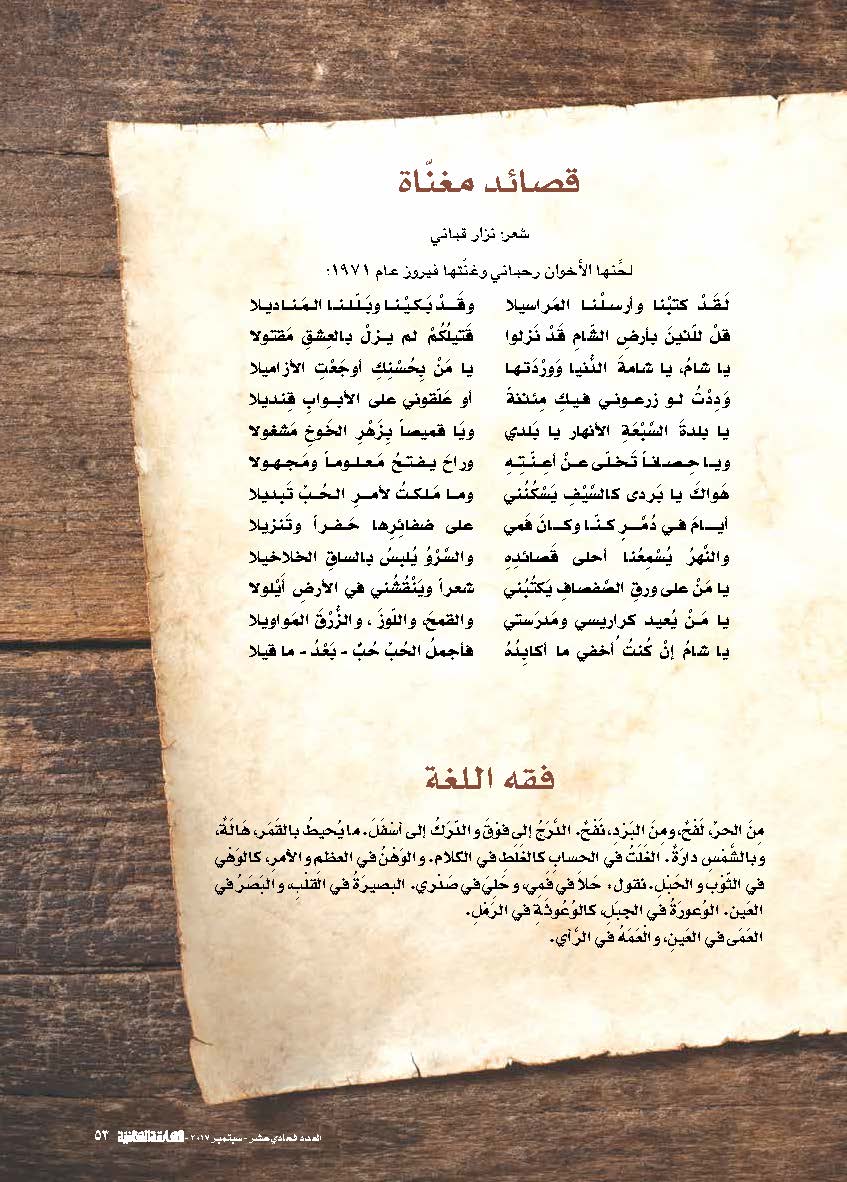 قصائد مغنّاة
شعر: نزار قباني
لحَّنها الأخوان رحباني وغنّتها فيروز عام ١٩٧١:
لَقَدْ كتبْنا وأرسلْنا المَراسيلا وقَدْ بَكَيْنا وبَلّلنا المَناديلا
قلْ للّذينَ بأرضِ الشّامِ قَدْ نَزلوا قَتيلُكُمْ لم يزلْ بالعِشقِ مَقتولا
يا شامُ، يا شامةَ الدُّنيا وَوَرْدَتها يا مَنْ بِحُسْنِكِ أوجَعْتِ الأزاميلا
وَدِدْتُ لو زرعوني فيكِ مِئذنةً أو عَلّقوني على الأبوابِ قِنديلا
يا بلدةَ السَّبْعَةِ الأنهار يا بَلدي ويَا قميصاً بِزَهْرِ الخَوخِ مَشغولا
ويا حِصاناً تَخلّى عنْ أعِنّتِهِ وراحَ يفتحُ مَعلوماً ومَجهولا
هَواكَ يا بَردى كالسَّيْفِ يَسْكُنُني وما مَلكتُ لأمرِ الحُبّ تَبديلا
أيامَ في دُمَّرٍ كنّا وكانَ فَمي على ضفائِرِها حَفراً وتَنزيلا
والنَّهرُ يُسْمِعُنا أحلى قَصائدِهِ والسَّرْوُ يُلبسُ بالساقِ الخلاخيلا
يا مَنْ على ورقِ الصَّفصافِ يَكتُبُني شعراً ويَنْقُشُني في الأرضِ أيْلولا
يا مَنْ يُعيد كراريسي ومَدرَستي والقمحَ، واللّوزَ، والزُّرْقَ المَواويلا
يا شامُ إنْ كُنتُ أخفي ما أكابِدُهُ فأجملُ الحُبّ حُبٌ - بَعْدُ - ما قيلا
فقه اللغة
مِنَ الحرِّ، لَفْحٌ، ومِنَ البَرْدِ، نَفْحٌ. الدَّرَجُ إلى فَوْقَ والدّرَكُ إلى أسْفَلَ. ما يُحيطُ بالقَمَر، هَالَةٌ،
وبالشَّمْسِ دارَةٌ. الغَلَتُ في الحسابِ كالغَلَطِ في الكلام. والوَهْنُ في العظم والأمرِ، كالوَهْي
في الثّوْبِ والحَبْل. نقول: حَلاَ في فَمِي، وحَليَ في صَدْري. البصيرَةُ في القَلْبِ، والبَصَرُ في
العَين. الوُعورَةُ في الجبَلِ، كالوُعُوثَةِ في الرَّمْلِ.
العَمَى في العَينِ، والْعَمَهُ في الرَّأي.
العدد الحادي عشر - سبتمبر ٢٠١٧ - ٥٣